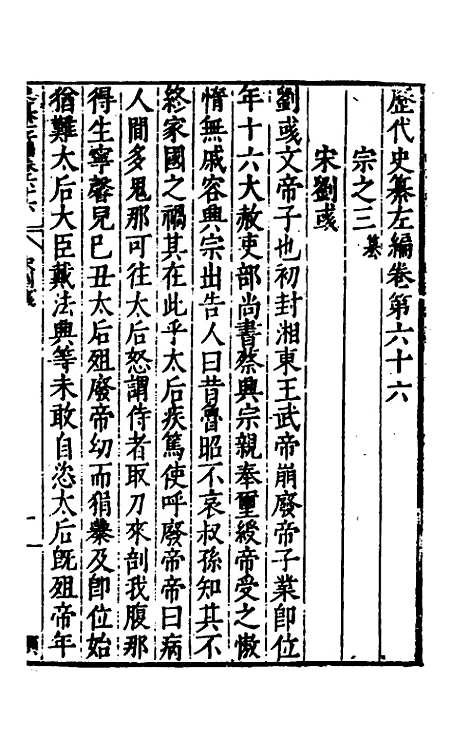 歷代史纂左編卷第六十六
宗之三 篡
宋劉彧
劉彧文帝子也初封湘東王武帝崩廢帝子業即位
年十六大赦吏部尚書蔡興宗親奉璽綬帝受之傲
惰無戚容興宗出告人曰昔魯昭不哀叔孫知其不
終家國之禍其在此乎太后疾篤使呼廢帝帝曰病
人間多鬼那可往太后怒謂侍者取刀來剖我腹那
得生寧馨兒己丑太后殂廢帝幼而狷暴及即位始
猶難太后大臣戴法興等未敢自恣太后既殂帝年